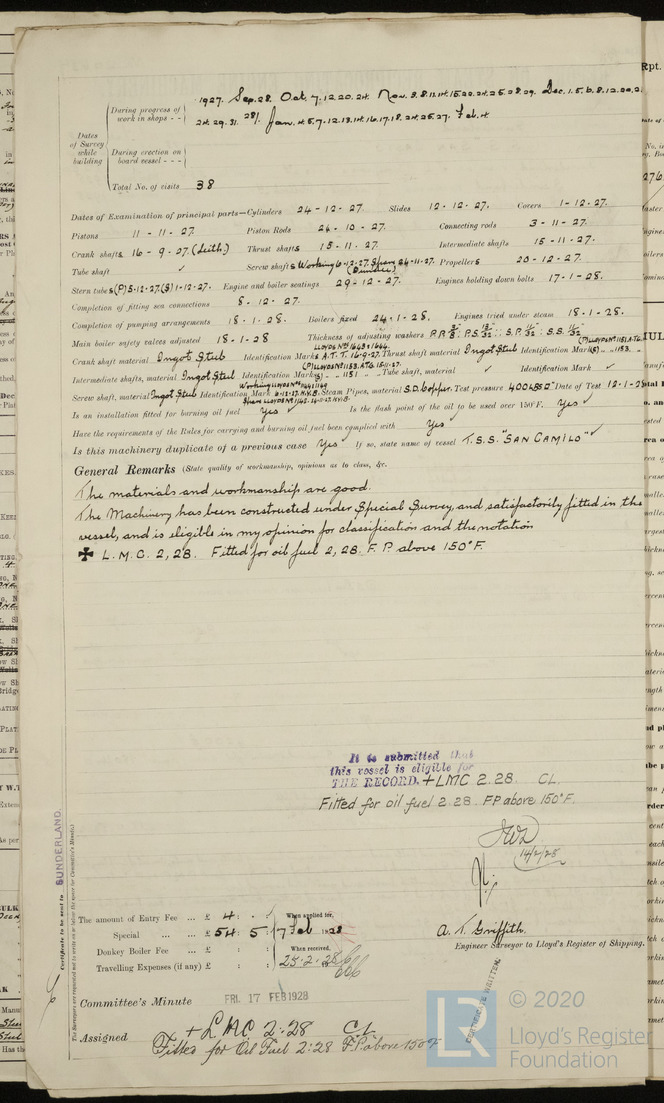 1927. Sep. 28. Oct. 7. 12. 20. 24. Nov. 3. 8. 11. 14. 15. 20. 24. 25. 28. 29. Dec. 1. 5. 6. 8. 12. 20. 21.
During progress of work in shops - -
24. 29. 31. 28/. Jan. 4. 5. 7. 12. 13. 14. 16. 17. 18. 24. 25. 27. Feb. 4
Dates of Survey while building
During erection on board vessel - - -
Total No. of visits 38
Dates of Examination of principal parts—Cylinders 24-12-27. Slides 12.12.27. Covers 1-12-27.
Pistons 11-11-27. Piston Rods 24-10-27. Connecting rods 3-11-27.
Crank shafts 16-9-27. (Leith.) Thrust shafts 15-11-27. Intermediate shafts 15-11-27.
Tube shaft ✓ Screw shafts Working 6-12-27. Spare 24-11-27. (Dundee) Propellers 20-12-27.
Stern tubes (P) 5-12-27. (S) 1-12-27. Engine and boiler seatings 29-12-27. Engines holding down bolts 17-1-28.
Completion of fitting sea connections 8-12-27.
Completion of pumping arrangements 18-1-28. Boilers fixed 24-1-28. Engines tried under steam 18-1-28.
Main boiler safety valves adjusted 18-1-28 Thickness of adjusting washers
Crank shaft material Ingot Steel Identification Mark Thrust shaft material Ingot Steel Identification Mark
Intermediate shafts, material Ingot Steel Identification Marks Tube shaft, material ✓ Identification Mark ✓
Screw shaft, material Ingot Steel Identification Mark Steam Pipes, material S.D. Copper. Test pressure 400 lbs □" Date of Test 12-1-28
Is an installation fitted for burning oil fuel Yes ✓ Is the flash point of the oil to be used over 150°F. Yes ✓
Have the requirements of the Rules for carrying and burning oil fuel been complied with Yes ✓
Is this machinery duplicate of a previous case Yes ✓ If so, state name of vessel T.S.S. "SAN CAMILO" ✓
General Remarks (State quality of workmanship, opinions as to class, &c.
The materials and workmanship are good.
The Machinery has been constructed under Special Survey, and satisfactorily fitted in the
vessel, and is eligible in my opinion for classification and the notation
✠ L.M.C. 2,28. Fitted for oil fuel 2,28. F.P. above 150°F.
It is submitted that
this vessel is eligible for
THE RECORD. + LMC 2.28. CL.
Fitted for oil fuel 2.28. FP above 150°F.
14/2/28
SUNDERLAND.
Certificate to be sent to
The amount of Entry Fee ... £ 4 : - : When applied for,
Special ... £ 54 : 5 : 17 Feb 1928
Donkey Boiler Fee ... £ : : When received,
Travelling Expenses (if any) £ : : 25.2.28
A. T. Griffith.
Engineer Surveyor to Lloyd's Register of Shipping.
CERTIFICATE WRITTEN.
Committee's Minute FRI. 17 FEB 1928
Assigned + LMC 2:28 CL
Fitted for Oil Fuel 2:28 F.P. above 150°F
LR
© 2020
Lloyd's Register
Foundation